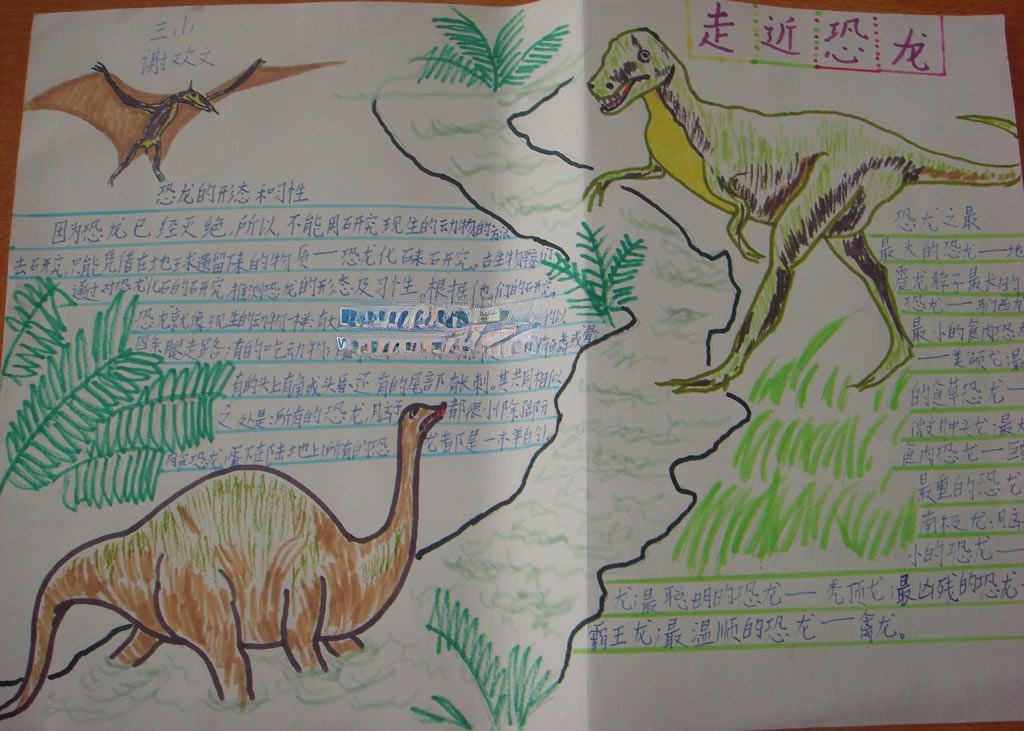 三小
谢欢文
走近恐龙
恐龙的形态和习性
因为恐龙已经灭绝,所以,不能用研究现生的动物的方法
去研究,只能凭借在地球遗留下来的物质——恐龙化石来研究。古生物学家们
通过对恐龙化石的研究,推测恐龙的形态及习性。根据他们的研究,
恐龙就像现生的动物一样有
四条腿走路;有的吃动物
有的头上有角或头骨,还有的尾部有长刺。其共同相似
之处是:所有的恐龙,脑子都很小;除部分
恐龙,蛋下在陆地上;所有的恐龙都是一样的。
恐龙之最
最大的恐龙——地
震龙;脖子最长的
恐龙——马门西龙
最小的食肉恐龙
——美颌龙;最
的食草恐龙——
微肿头龙;最
食肉恐龙——
最重的恐龙
南极龙;脑
小的恐龙——
龙;最聪明的恐龙——秃顶龙;最凶残的恐龙
霸王龙;最温顺的恐龙——禽龙。